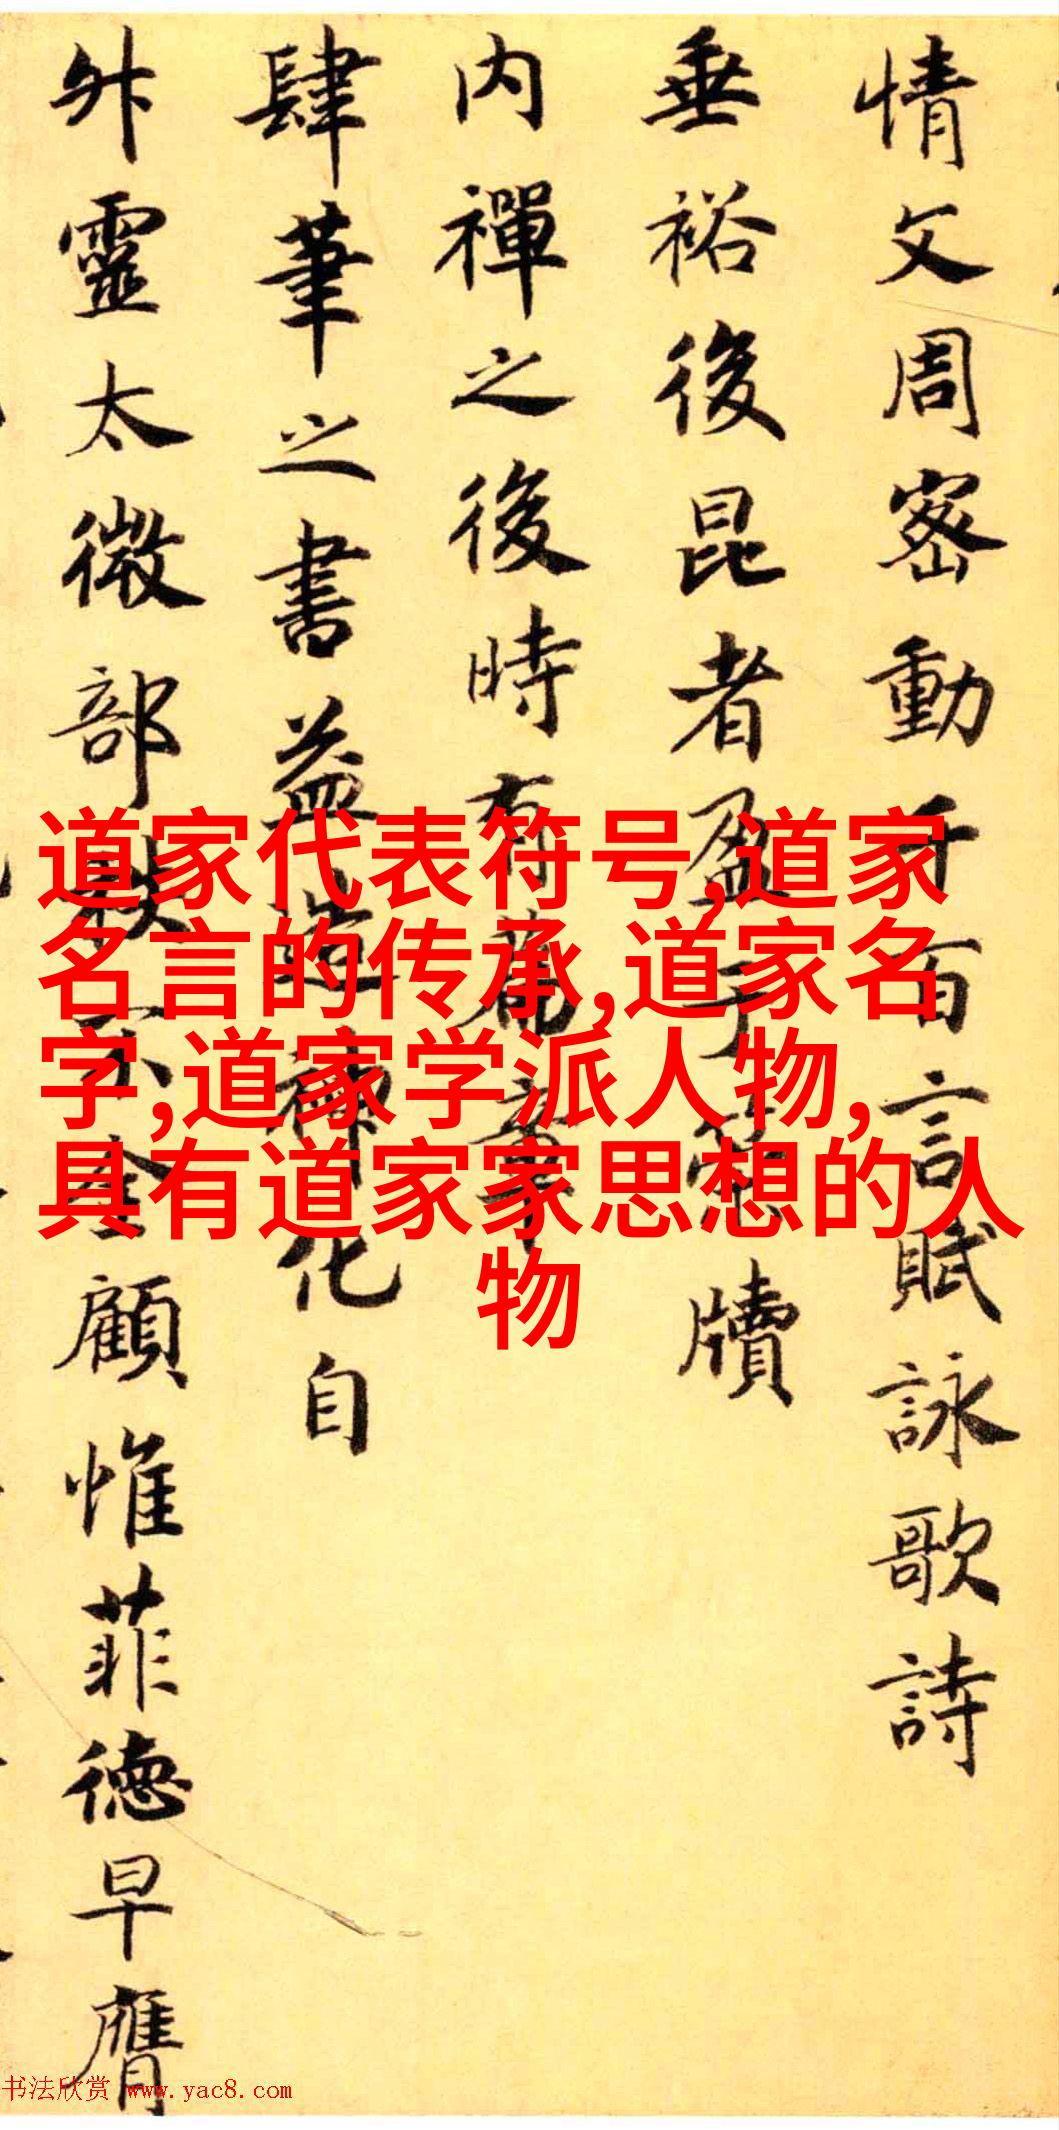 情文周密動千百言賦詠歌詩
垂裕後昆者盈於牋牘
内禪之後時有篇章
肆筆之書益造神化自
升靈太微部秩宗令顧惟菲德早膺
道家代表符号,道家
名言的传承,道家名
字,道家学派人物,
具有道家家思想的人
物
书法欣赏 www.yac8.com